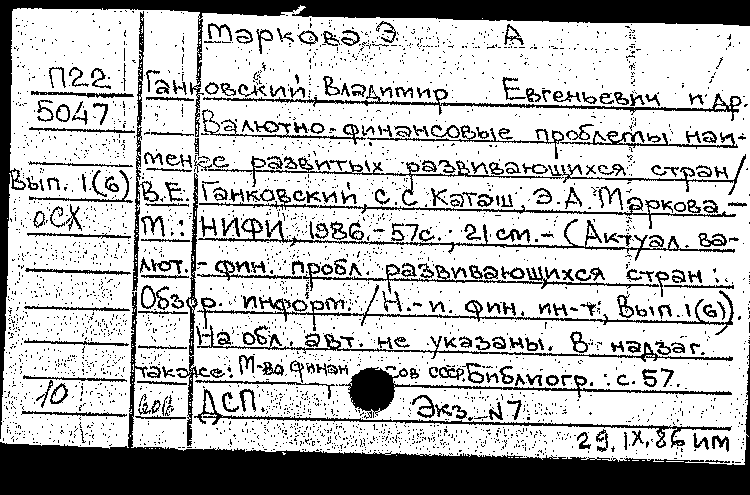 Маркова Э А
П22 Ганковский, Владимир Евгеньевич и др.
5047 Валютно-финансовые проблемы наи-
менее развитых развивающихся стран/
Вып. 1(6) В.Е. Ганковский, С.С. Каташ, Э.А. Маркова. –
ОСХ М.: НИФИ, 1986. – 57с.; 21 см. – (Актуал. ва-
лют.-фин. пробл. развивающихся стран:
Обзор. информ. / Н.-и. фин. ин-т, Вып. 1(6)).
На обл. авт. не указаны. В надзаг.
также: М-ва финансов СССР. Библиогр.: с. 57.
10 ДСП. Экз. N 7
29.IX.86 им